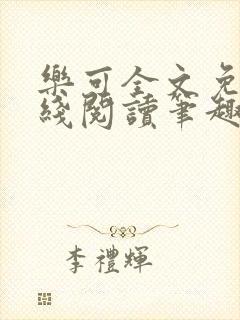 樂可全文免
綫閱讀筆趣
李禮輝